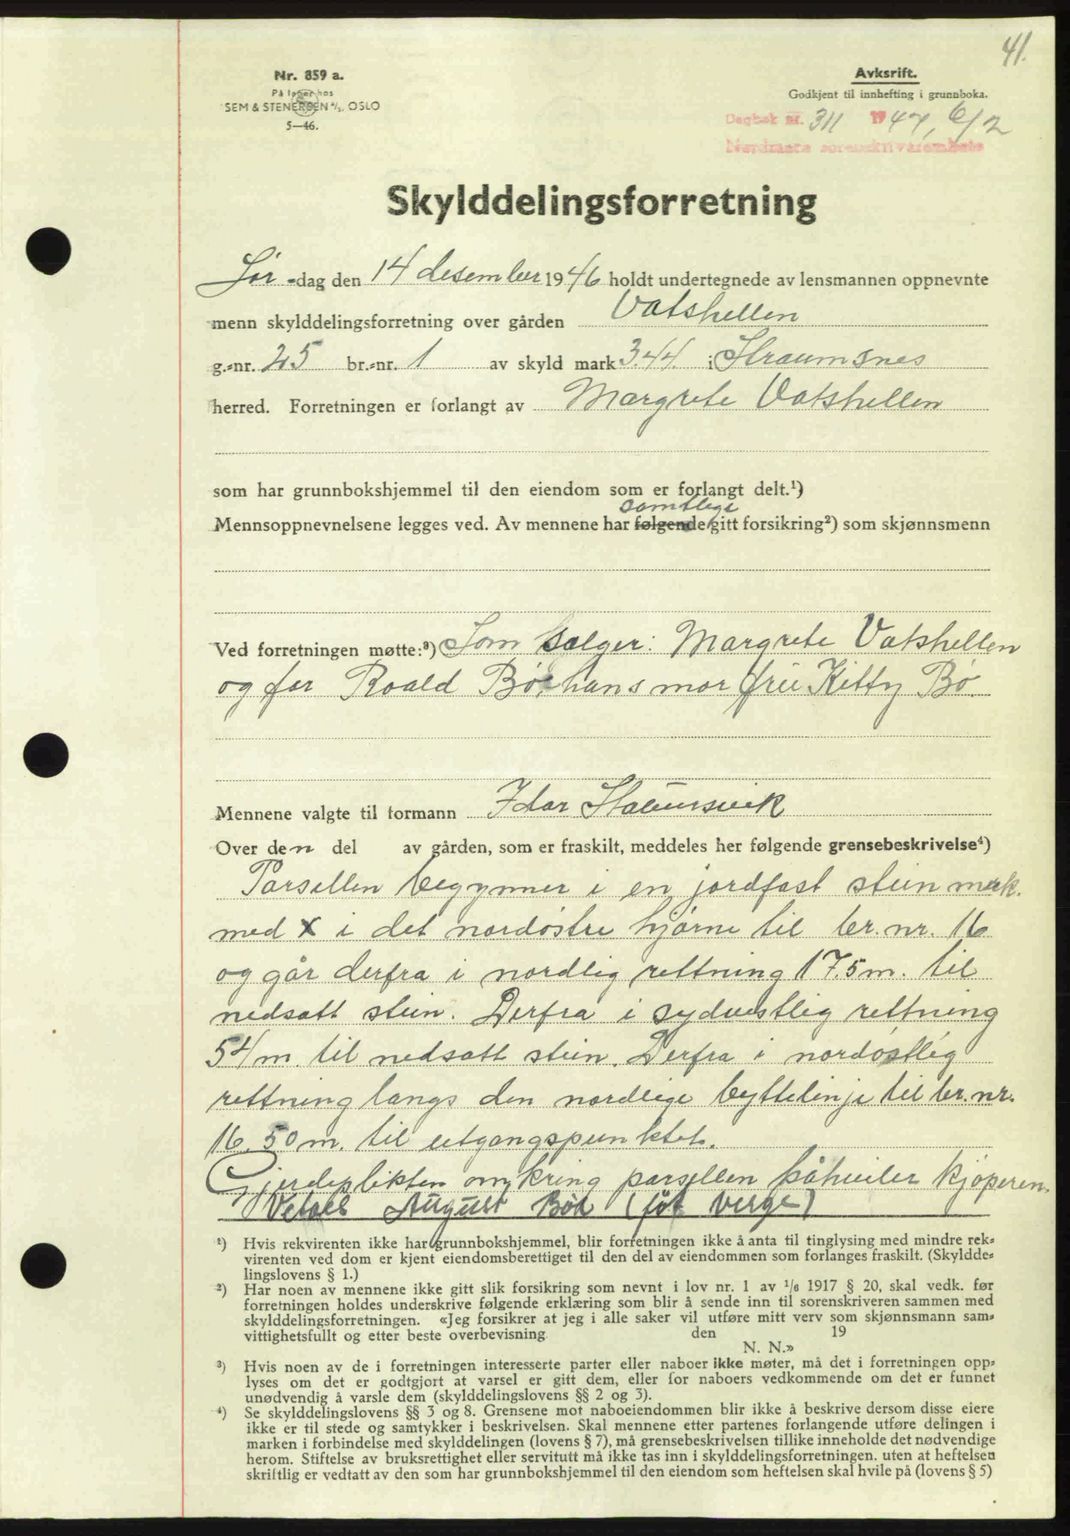 41.
Nr. 859 a.
På lager hos
SEM & STENERSEN A/S, OSLO
5—46.
Avksrift.
Godkjent til innhefting i grunnboka.
Dagbok nr. 311 1947, 6/2
Nordmøre sorenskriverembete
Skylddelingsforretning
Lør-dag den 14 desember 1946 holdt undertegnede av lensmannen oppnevnte
menn skylddelingsforretning over gården Vatshellen
g.-nr. 25 br.-nr. 1 av skyld mark 3.44. i Straumsnes
herred. Forretningen er forlangt av Margrete Vatshellen
som har grunnbokshjemmel til den eiendom som er forlangt delt.¹)
samtlige
Mennsoppnevnelsene legges ved. Av mennene har følgende gitt forsikring²) som skjønnsmenn
Ved forretningen møtte:³) Som selger: Margrete Vatshellen
og for Roald Bø, hans mor frü Kitty Bø.
Mennene valgte til formann Idar
Over den del av gården, som er fraskilt, meddeles her følgende grensebeskrivelse⁴)
Parsellen begynner i en jordfast stein merk.
med X i det nordøstre hjørne til br. nr. 16
og går derfra i nordlig rettning 17.5 m. til
nedsatt stein. Derfra i sydvestlig rettning
54 m. til nedsatt stein. Derfra i nordøstlig
rettning langs den nordlige byttelinje til br. nr.
16, 50 m. til utgangspunktet.
Gjerdeplikten omkring parsellen påhviler kjøperen.
August (før verge)
¹) Hvis rekvirenten ikke har grunnbokshjemmel, blir forretningen ikke å anta til tinglysing med mindre rek-
virenten ved dom er kjent eiendomsberettiget til den del av eiendommen som forlanges fraskilt. (Skyldde-
lingslovens § 1.)
²) Har noen av mennene ikke gitt slik forsikring som nevnt i lov nr. 1 av 1/6 1917 § 20, skal vedk. før
forretningen holdes underskrive følgende erklæring som blir å sende inn til sorenskriveren sammen med
skylddelingsforretningen. «Jeg forsikrer at jeg i alle saker vil utføre mitt verv som skjønnsmann sam-
vittighetsfullt og etter beste overbevisning den 19
N. N.»
³) Hvis noen av de i forretningen interesserte parter eller naboer ikke møter, må det i forretningen opp-
lyses om det er godtgjort at varsel er gitt dem, eller for naboers vedkommende om det er funnet
unødvendig å varsle dem (skylddelingslovens §§ 2 og 3).
⁴) Se skylddelingslovens §§ 3 og 8. Grensene mot naboeiendommen blir ikke å beskrive dersom disse eiere
ikke er til stede og samtykker i beskrivelsen. Skal mennene etter partenes forlangende utføre delingen i
marken i forbindelse med skylddelingen (lovens § 7), må grensebeskrivelsen tillike inneholde det nødvendige
herom. Stiftelse av bruksrettighet eller servitutt må ikke tas inn i skylddelingsforretningen. uten at heftelsen
skriftlig er vedtatt av den som har grunnbokshjemmel til den eiendom som heftelsen skal hvile på (lovens § 5)